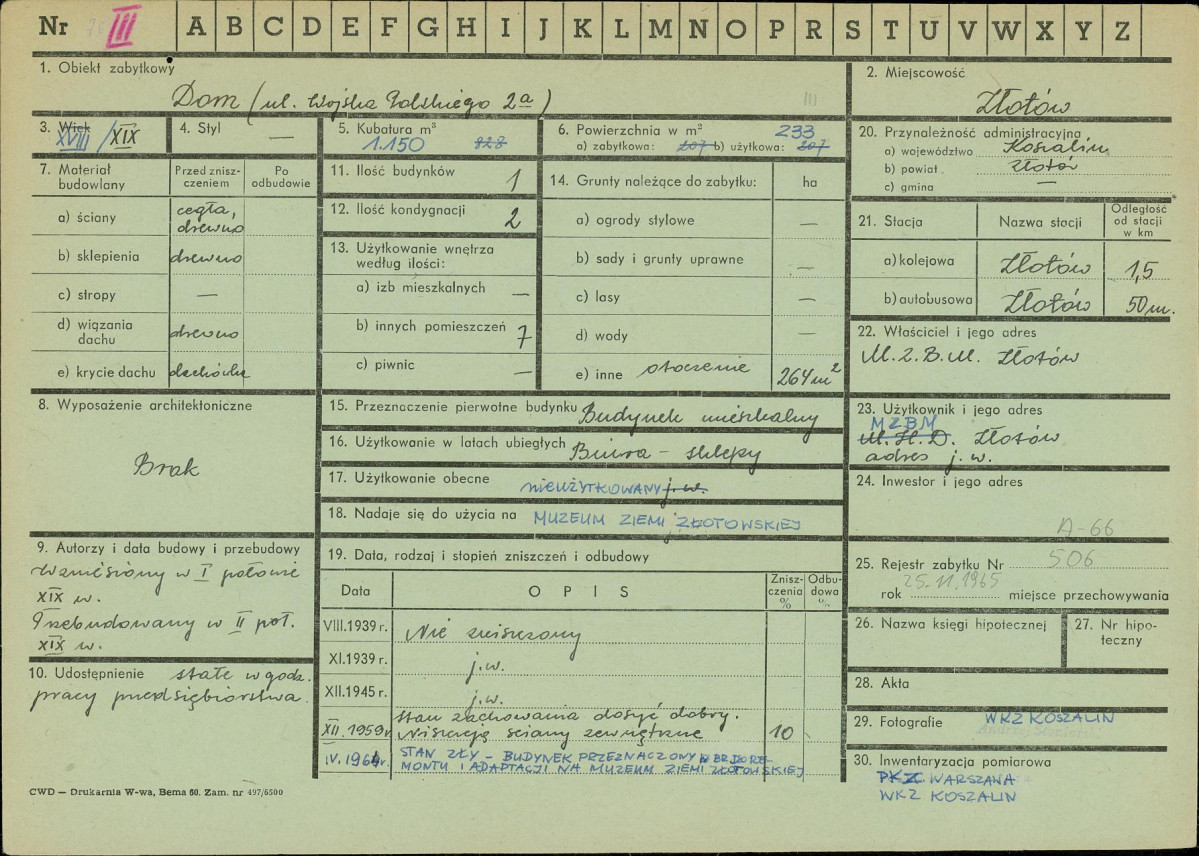 Nr III A B C D E F G H I J K L M N O P R S T U V W X Y Z
1. Obiekt zabytkowy
Dom (ul. Wojska Polskiego 2a)
2. Miejscowość
Złotów
3. Wiek
XVIII / XIX
4. Styl
—
5. Kubatura m³
1.150 828
6. Powierzchnia w m² 233
a) zabytkowa: 207 b) użytkowa: 207
7. Materiał budowlany
Przed zniszczeniem
Po odbudowie
a) ściany cegła, drewno
b) sklepienia drewno
c) stropy —
d) wiązania dachu drewno
e) krycie dachu dachówka
8. Wyposażenie architektoniczne
Brak
9. Autorzy i data budowy i przebudowy
Wzniesiony w I połowie
XIX w.
Przebudowany w II poł.
XIX w.
10. Udostępnienie stałe w godz.
pracy przedsiębiorstwa.
11. Ilość budynków 1
12. Ilość kondygnacji 2
13. Użytkowanie wnętrza
według ilości:
a) izb mieszkalnych —
b) innych pomieszczeń 7
c) piwnic —
14. Grunty należące do zabytku: ha
a) ogrody stylowe —
b) sady i grunty uprawne —
c) lasy —
d) wody —
e) inne otoczenie 264 m²
15. Przeznaczenie pierwotne budynku Budynek mieszkalny
16. Użytkowanie w latach ubiegłych Biura – sklepy
17. Użytkowanie obecne NIEUŻYTKOWANY j.w.
18. Nadaje się do użycia na MUZEUM ZIEMI ZŁOTOWSKIEJ
19. Data, rodzaj i stopień zniszczeń i odbudowy
Data
OPIS
Zniszczenia %
Odbudowa %
VIII.1939 r. Nie zniszczony
XI.1939 r. j.w.
XII.1945 r. j.w.
XII.1959 r. Stan zachowania dosyć dobry.
Niszczeją ściany zewnętrzne 10
IV.1964 r. STAN ZŁY – BUDYNEK PRZEZNACZONY W BR. DO REMONTU I ADAPTACJI NA MUZEUM ZIEMI ZŁOTOWSKIEJ
20. Przynależność administracyjna
a) województwo Koszalin
b) powiat Złotów
c) gmina —
21. Stacja
Nazwa stacji
Odległość
od stacji
w km
a) kolejowa Złotów 1,5
b) autobusowa Złotów 50 m.
22. Właściciel i jego adres
M.Z.B.M. Złotów
23. Użytkownik i jego adres
MZBM
M.H.D. Złotów
adres j.w.
24. Inwestor i jego adres
A-66
25. Rejestr zabytku Nr 506
rok 25.11.1965 miejsce przechowywania
26. Nazwa księgi hipotecznej
27. Nr hipoteczny
28. Akta
29. Fotografie WKZ KOSZALIN
30. Inwentaryzacja pomiarowa
PKZ WARSZAWA
WKZ KOSZALIN
CWD — Drukarnia W-wa, Bema 60. Zam. nr 497/6500